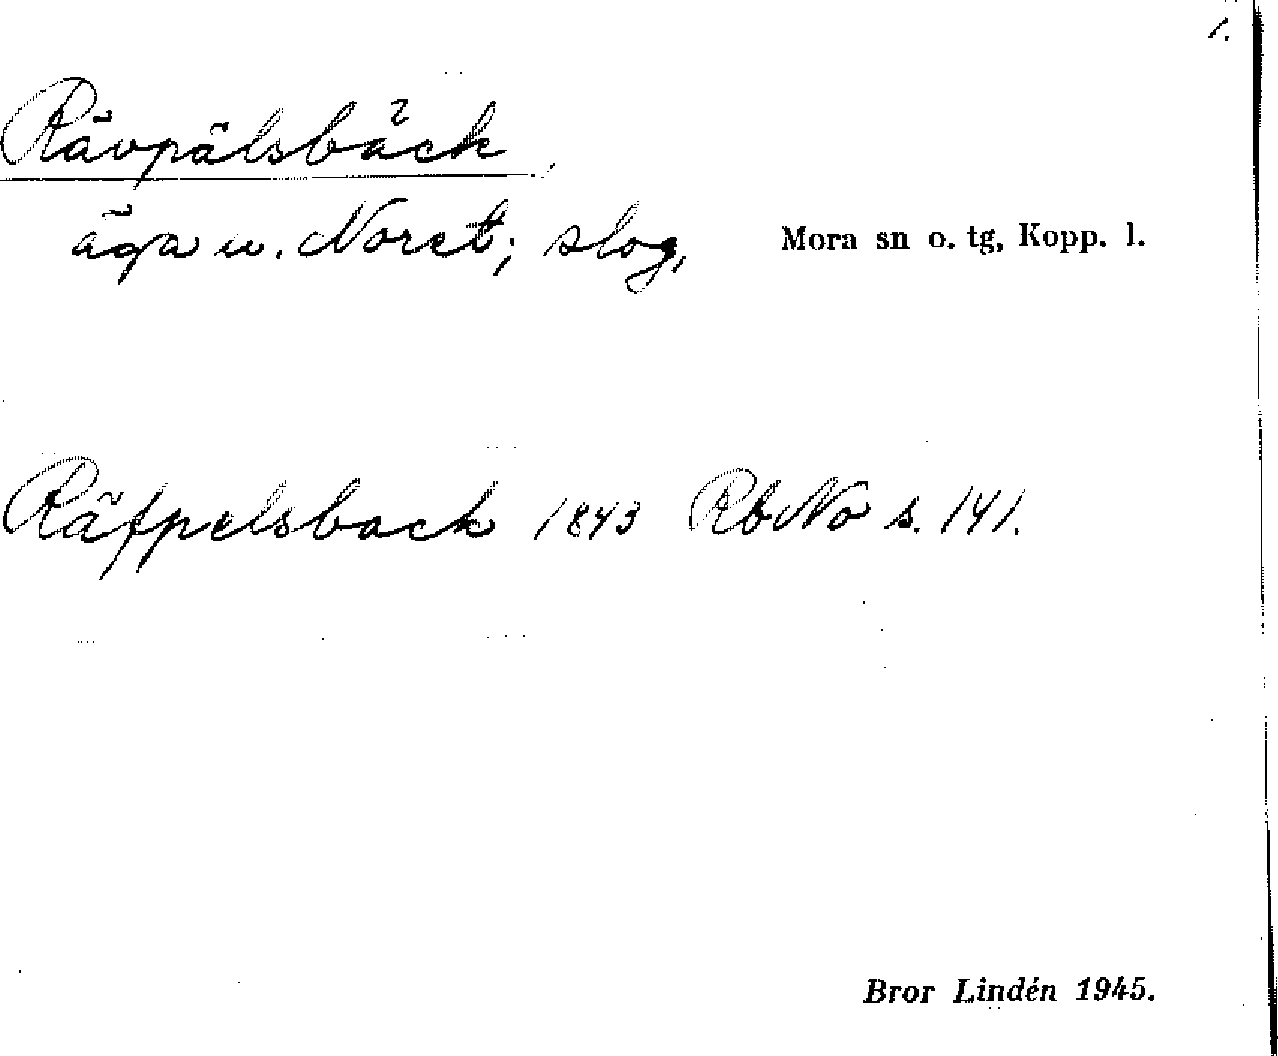 1.
Rävpälsbäck,
äga u. Noret; slog, Mora sn o. tg, Kopp. l.
Räfpelsback 1843 RbNo s. 141.
Bror Lindén 1945.